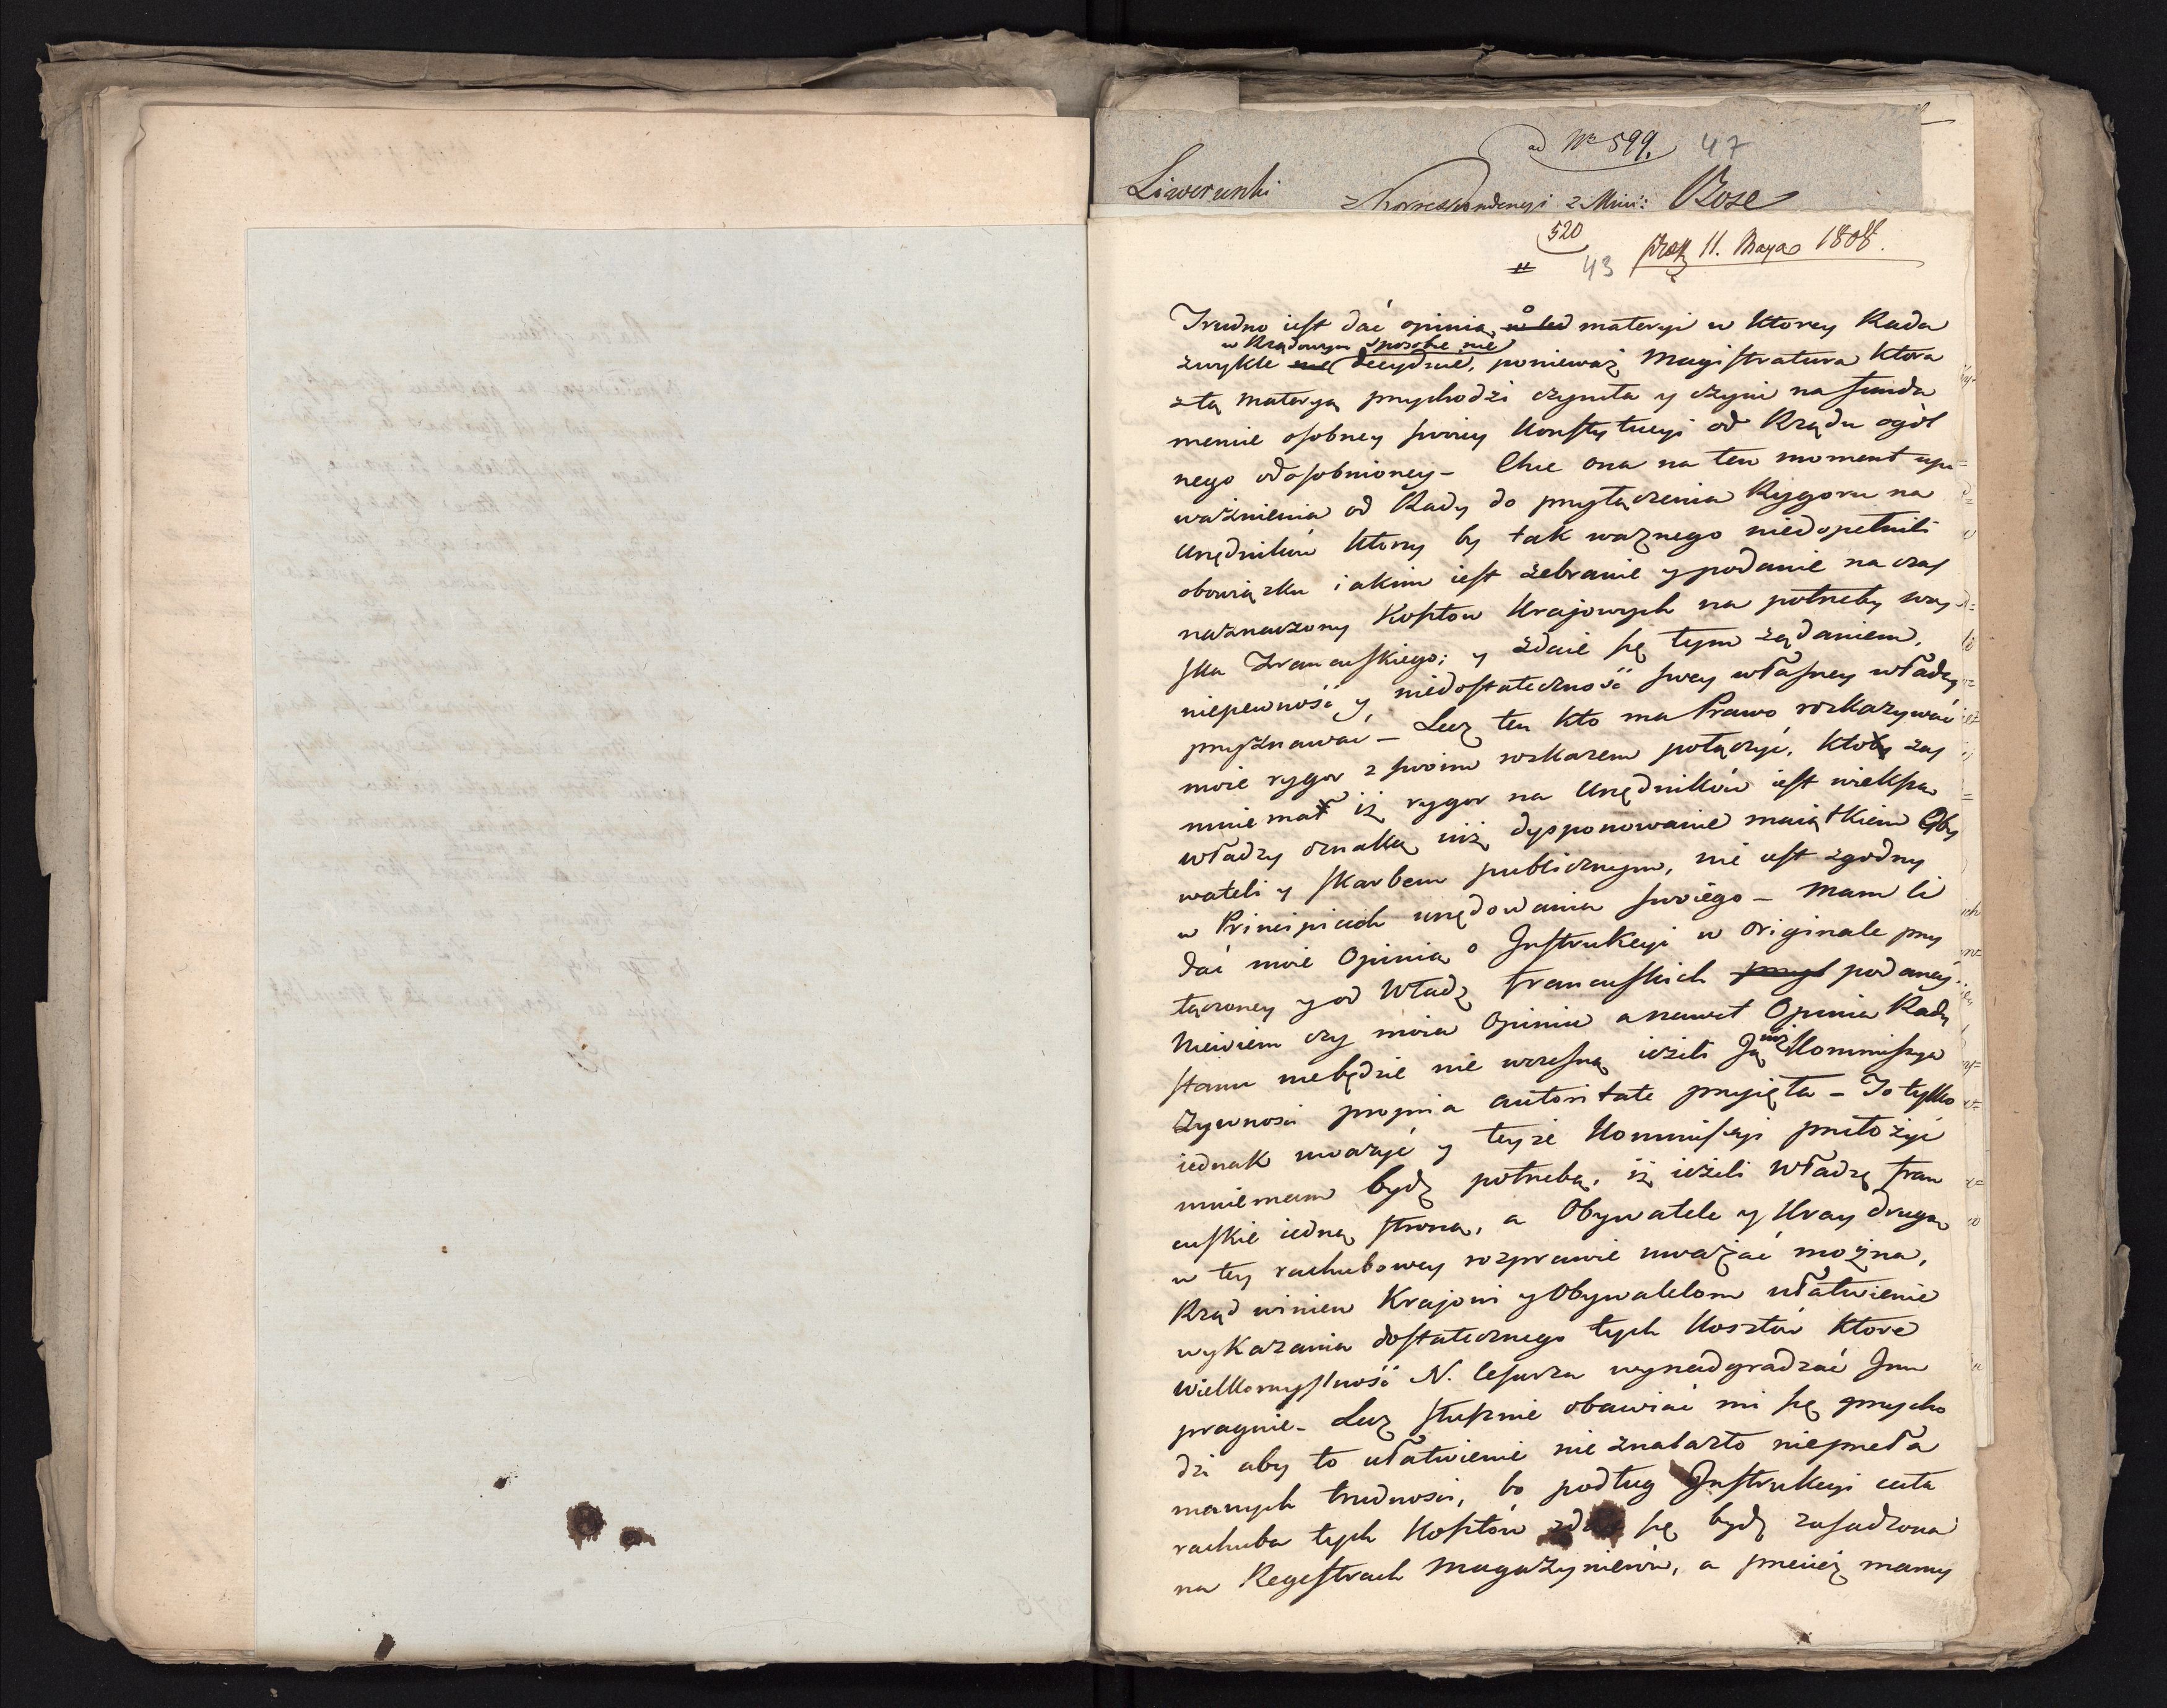 ad Nr 599. 47
Liwerunki z Korrespondencyi z Mini: Bose
520
43 11. Maya 1808.
Trudno iest dać opinią o materyi w ktorey Rada
w Rządowym sposobie nie
zwykle decyduie, ponieważ Magistratura ktora
z tą materyą przychodzi czynita y czyni na funda
mencie osobney swoiey Konstytucyi od Rządu ogól
nego odosobnioney - Chce ona na ten moment upo
ważnienia od Rady do przyłączenia Rygoru na
Urzędników ktorzy by tak ważnego niedopełnili
obowiązku iakim iest zebranie y podanie na czas
naznaczony Kosztow Krajowych na potrzeby woy
ska Francuskiego; y zdaie się tym żądaniem,
niepewność y niedostateczność swey własney władzy
przyznawać - Lecz ten kto ma Prawo rozkazywać
może rygor z swoim rozkazem połączyć, kto zaś
mniema iż rygor na Urzędników iest wieksza
władzy oznaka niż dysponowanie maiątkiem Oby
wateli y skarbem publicznym, nie iest zgodny
w Principiach urzędowania swoiego - Mam li
dać moie Opinią o Instrukcyi w originale przy
łączoney y od Władz francuskich podaney.
Niewiem czy moia Opinia a nawet Opinia Rady
stanu niebędzie nie wczesną ieżeli Ją już Kommissya
Żywności propria autoritate przyięta - To tylko
iednak uważyć y teyże Kommissyi przełożyć
mniemam bydź potrzebą, iż ieżeli Władzę fran
cuskie iedną stroną, a Obywatele y Kray drugą
w tey rachubowey rozprawie uważać można,
Rząd winien Krajowi y Obywatelom ułatwienie
wykazania dostatecznego tych Kosztów ktore
wielkomyslność N. Cesarza wynadgradzać Im
pragnie - Lecz słusznie obawiać mi się przycho
dzi aby to ułatwienie nie znalazło nieprzeła
manych trudności, bo podług Instrukcyi cała
rachuba tych Kosztów zdaie się bydź zasadzona
na Regestrach Magazynierów, a przecież mamy